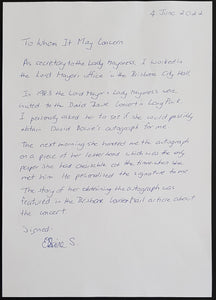 4 June 2022
To Whom It May Concern
As secretary to the Lady Mayoress, I worked in
the Lord Mayor's office in the Brisbane City Hall.
In 1983 the Lord Mayor & Lady Mayoress were
invited to the David Bowie Concert in Lang Park
I personally asked her to see if she could possibly
obtain David Bowie's autograph for me.
The next morning she handed me the autograph
on a piece of her letterhead which was the only
paper she had available at the time when she
met him. He personalised the signature to me
The story of her obtaining the autograph was
featured in the Brisbane Courier Mail article about
the concert.
Signed:
S.